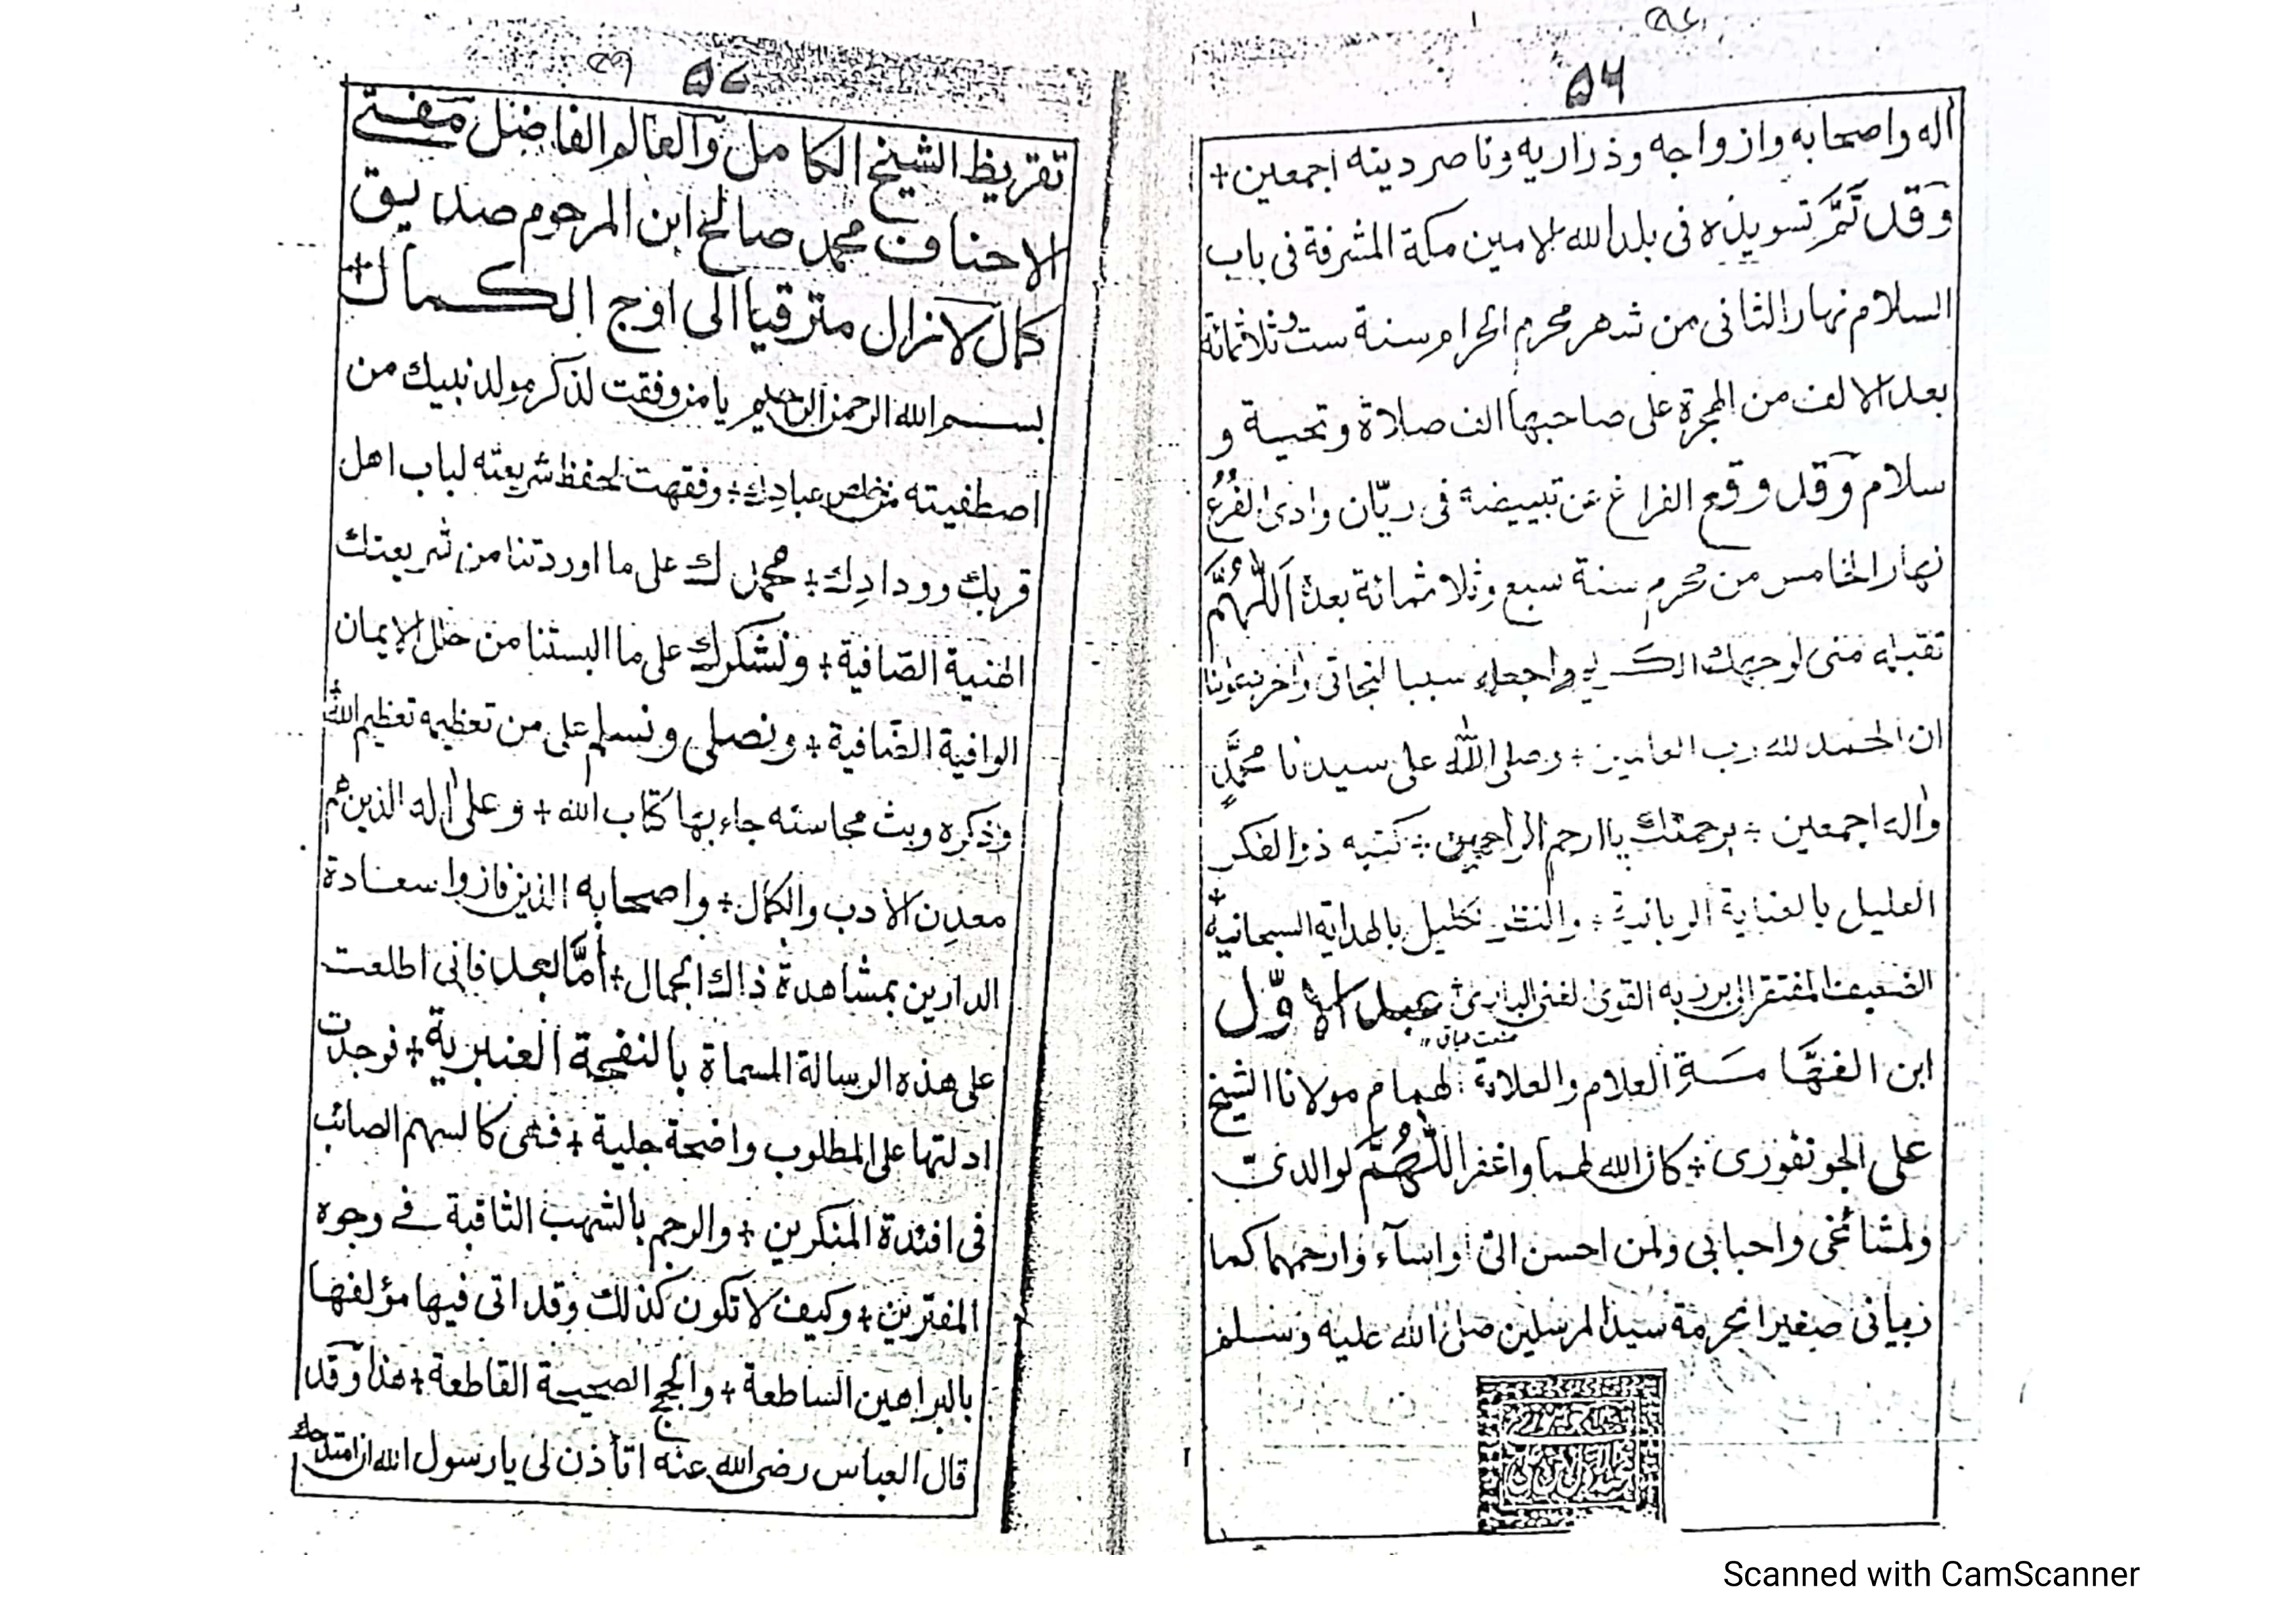 ٥٦
اله واصحابه وازواجه وذراريه وناصر دينه اجمعين +
وقد تمّ تسويده فى بلد الله الامين مكة المشرفة فى باب
السلام نهار الثانى من شهر محرم الحرام سنة ست وثلاثمائة
بعد الالف من الهجرة على صاحبها الف صلاة وتحية و
سلام وقد وقع الفراغ عن تبييضه فى ريّان وادى الفُرُع
نهار الخامس من محرم سنة سبع وثلاثمائة بعده اَللّٰهُمَّ
تقبله منى لوجهك الكريم واجعله سببا لنجاتى واخر دعوانا
ان الحمد لله رب العالمين + وصلى الله على سيدنا محمَّدٍ
واله اجمعين + برحمتك ياارحم الراحمين + كتبه ذو الفكر
العليل بالعناية الربانية + والنظر الكليل بالهداية السبحانية +
الضعيف المفتقر الى بر ربه القوى الغنى البارى عبد الاوّل
ابن الفهّامَةِ العلام والعلامة الهمام مولانا الشيخ
على الجونفورى + كان الله لهما واغفر اللّٰهُمَّ لوالدىّ
ولمشائخى واحبابى ولمن احسن الىّ اواسآء وارحمهما كما
ربيانى صغيرا بحرمة سيد المرسلين صلى الله عليه وسلم
٥٧
تقريظ الشيخ الكامل والعالم الفاضل مفتى
الاحناف محمد صالح ابن المرحوم صديق
كمال لازال مترقيا الى اوج الكمال +
بسم الله الرحمن الرحيم يا من وفقت لذكر مولد نبيك من
اصطفيته من خلص عبادِك + وفقهت لحفظ شريعته لباب اهل
قربك وودادِك + نحمدك على ما اوردتنا من شريعتك
الهنية الصّافية + ونشكرك على ما البستنا من حلل الايمان
الوافية الضّافية + ونصلى ونسلم على من تعظيمه تعظيم الله +
وذكره وبث محاسنه جاء بها كتاب الله + وعلى اله الذين هم
معدِن الادب والكمال + واصحابه الذين فازوا سعادة
الدارين بمشاهدة ذاك الجمال + أمّا بعد فانى اطلعت
على هذه الرسالة المسماة بالنفحة العنبرية + فوجدت
ادلتها على المطلوب واضحة جلية + فهى كالسهم الصائب
فى افئدة المنكرين + والرجم بالشهب الثاقبة فى وجوه
المفترين + وكيف لاتكون كذلك وقد اتى فيها مؤلفها
بالبراهين الساطعة + والحجج الصحيحة القاطعة + هذا وقد
قال العباس رضى الله عنه اتأذن لى يارسول الله ان امتدحك
Scanned with CamScanner